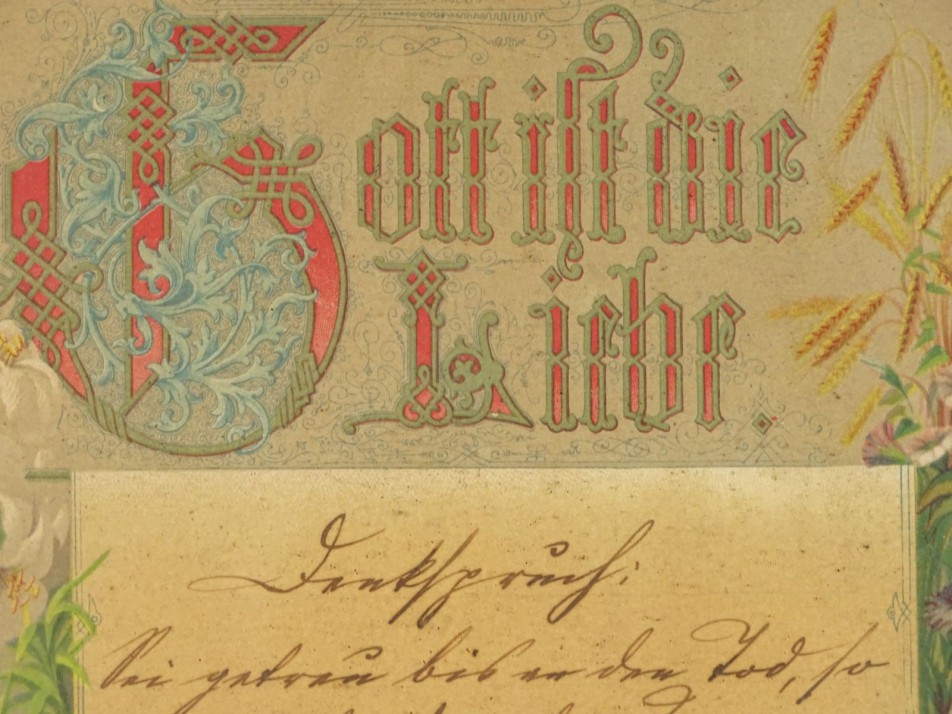 Gott ist die
Liebe.
Denkspruch:
Sei getreu bis an den Tod, so